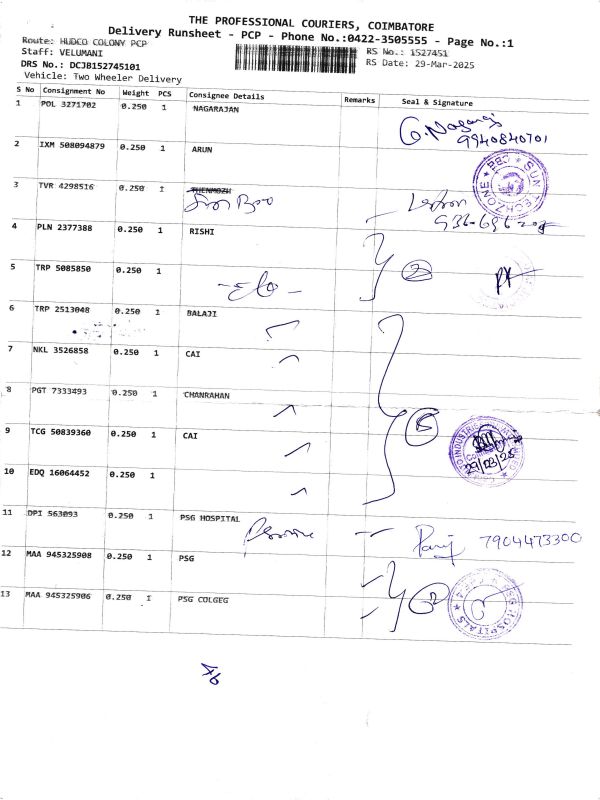 THE PROFESSIONAL COURIERS, COIMBATORE
Delivery Runsheet - PCP - Phone No.:0422-3505555 - Page No.:1
Route: HUDCO COLONY PCP
RS No.: 1527451
Staff: VELUMANI
RS Date: 29-Mar-2025
DRS No.: DCJB152745101
Vehicle: Two Wheeler Delivery
S No Consignment No Weight PCS Consignee Details Remarks Seal & Signature
1 POL 3271702 0.250 1 NAGARAJAN
9940840701
2 IXM 508094879 0.250 1 ARUN
3 TVR 4298516 0.250 1 THENMOZH
4 PLN 2377388 0.250 1 RISHI
5 TRP 5085850 0.250 1
2
6 TRP 2513048 0.250 1 BALAJI
7 NKL 3526858 0.250 1 CAI
8 PGT 7333493 0.250 1 CHANRAHAN
9 TCG 50839360 0.250 1 CAI
5
29/03/25
10 EDQ 16064452 0.250 1
11 DPI 563093 0.250 1 PSG HOSPITAL
7904473300
12 MAA 945325908 0.250 1 PSG
13 MAA 945325906 0.250 1 PSG COLGEG